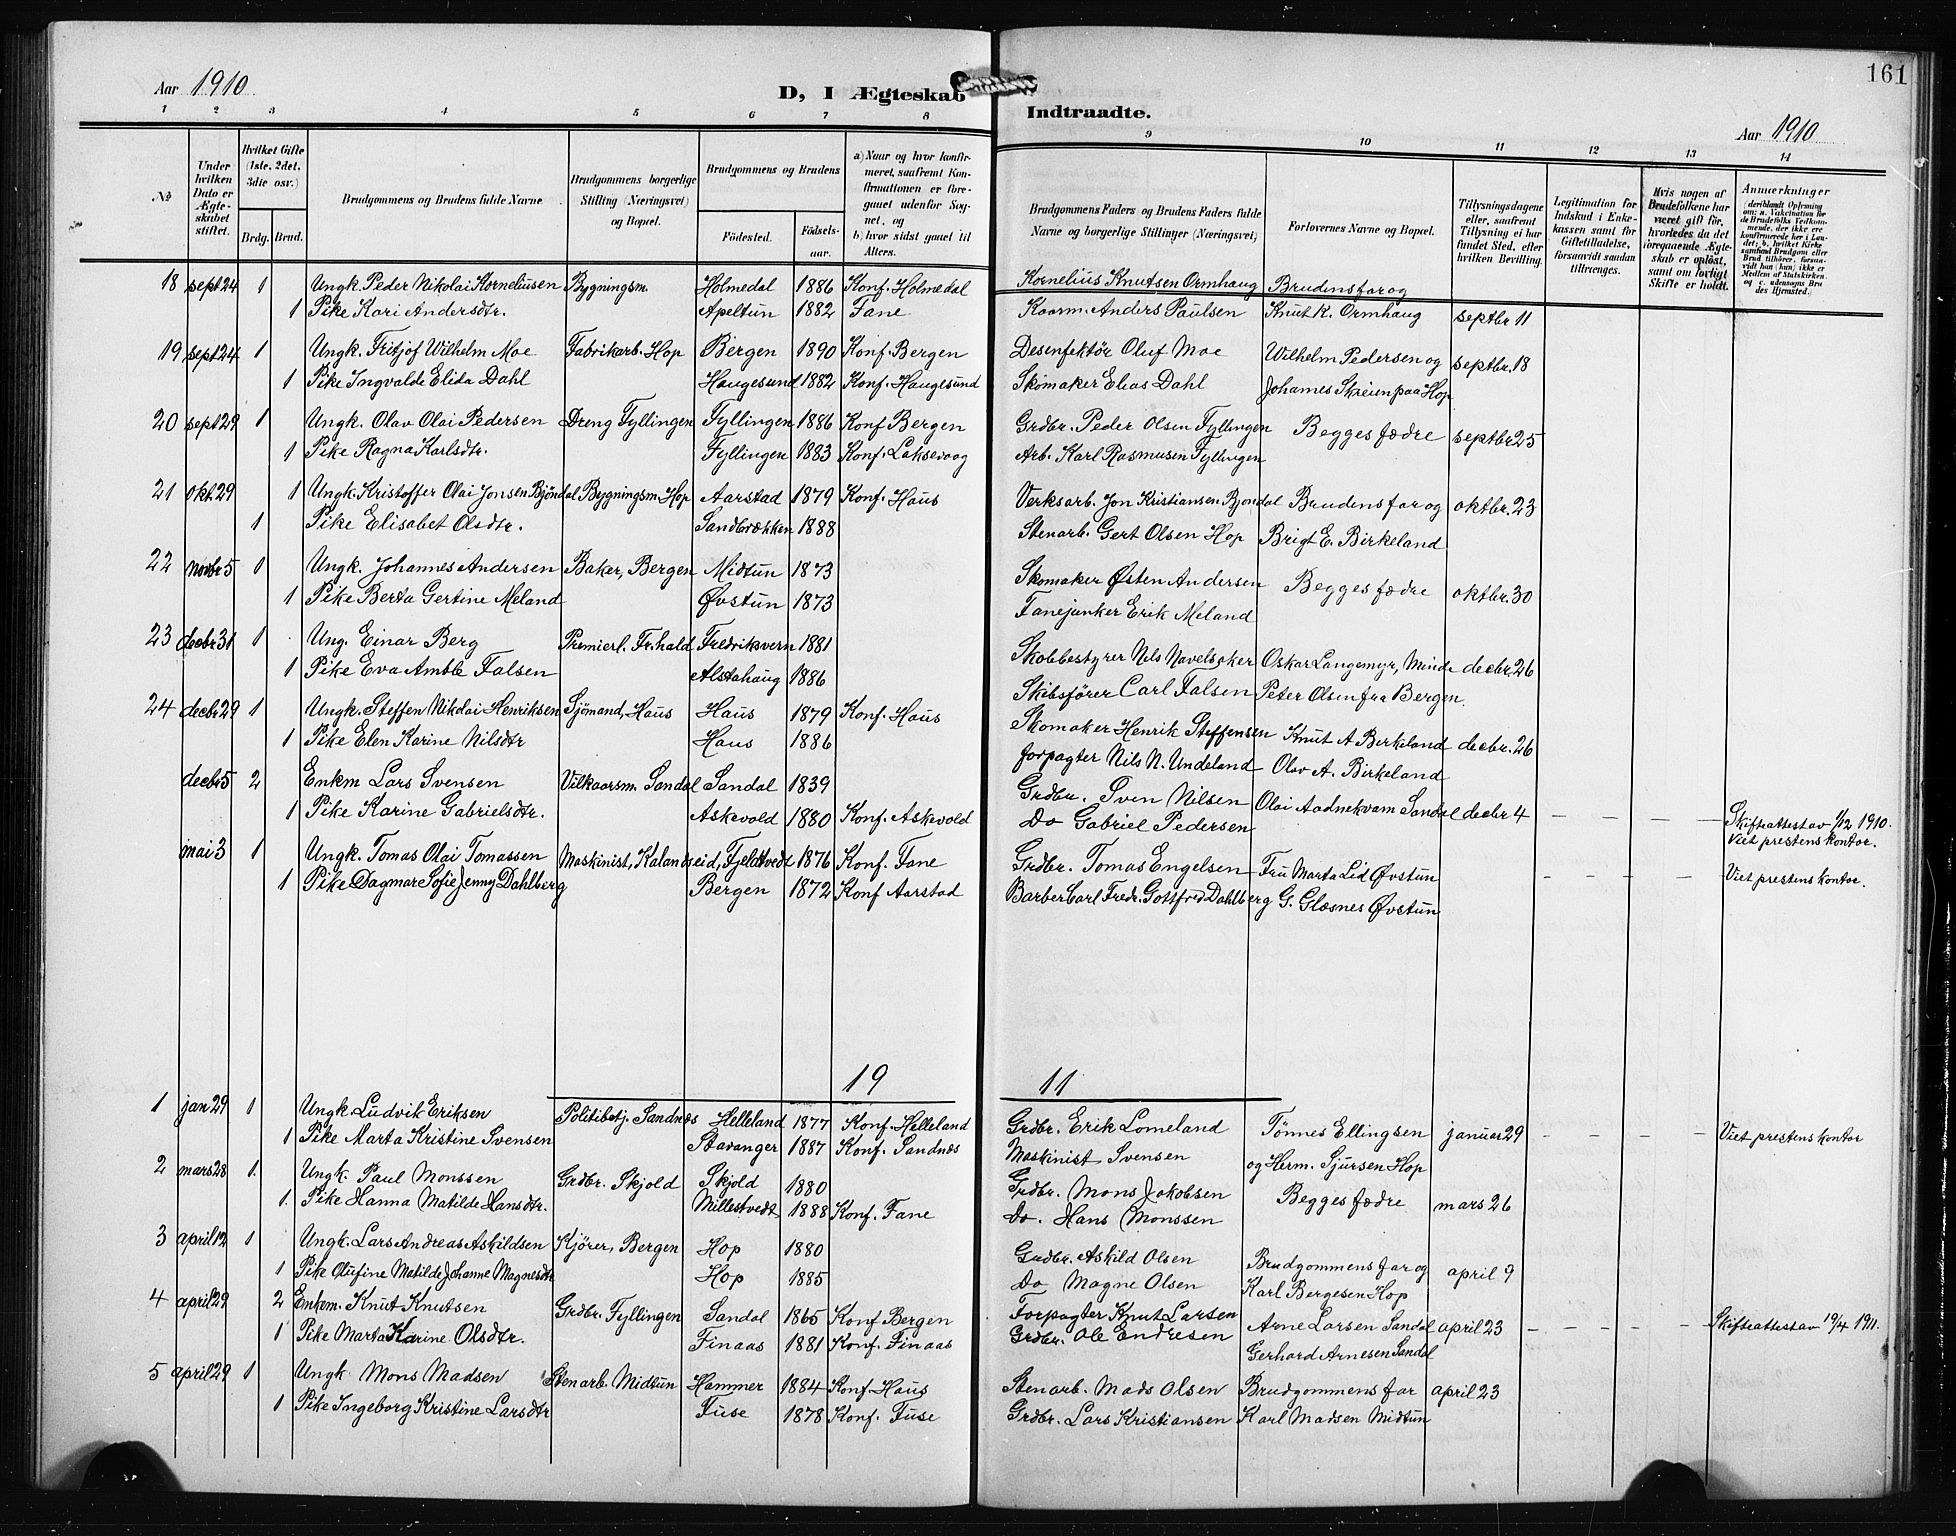 161
Aar 1910
D, I Ægteskab
Indtraadte.
Aar 1910
1 2 3 4 5 6 7 8 9 10 11 12 13 14
№
Under hvilken Dato er Ægteskabet stiftet.
Hvilket Gifte (1ste, 2det, 3die osv.)
Brdg. Brud.
Brudgommens og Brudens fulde Navne
Brudgommens borgerlige Stilling (Næringsvei) og Bopæl.
Brudgommens og Brudens
Fødested. Fødselsaar.
a) Naar og hvor konfirmeret, saafremt Konfirmationen er foregaaet udenfor Sognet, og
b) hvor sidst gaaet til Alters.
Brudgommens Faders og Brudens Faders fulde Navne og borgerlige Stillinger (Næringsvei)
Forlovernes Navne og Bopæl.
Tillysningsdagene eller, saafremt Tillysning ei har fundet Sted, efter hvilken Bevilling.
Legitimation for Indskud i Enkekassen samt for Giftetilladelse, forsaavidt saadan tiltrænges.
Hvis nogen af Brudefolkene har været gift før, hvorledes da det foregaaende Ægteskab er opløst, samt om lovligt Skifte er holdt.
Anmærkninger (deriblandt Oplysning om: a. Vakcination for de Brudefolks Vedkommende, der ikke ere konfirmerede her i Landet; b. hvilket Kirkesamfund Brudgom eller Brud tilhører, forsaavidt han (hun) ikke er Medlem af Statskirken, og c. udensogns Brudes Hjemsted.)
18 sept 24 1 Ungk. Peder Nikolai Korneliusen Bygningsm. Holmedal 1886 Konf. Holmedal Kornelius Knutsen Ormhaug Brudens far og
1 Pike Kari Andersdtr. Apeltun 1882 Fane Kaarm. Anders Paulsen Knut K. Ormhaug septbr 11
19 sept 24 1 Ungk. Fritjof Wilhelm Moe Fabrikarb. Hop Bergen 1890 Konf. Bergen Desenfektör Oluf Moe Wilhelm Pedersen og septbr. 18
1 Pike Ingvalde Elida Dahl Haugesund 1882 Konf. Haugesund Skomaker Elias Dahl Johannes Skreien paa Hop
20 sept 29 1 Ungk. Olav Olai Pedersen Dreng Fyllingen Fyllingen 1886 Konf Bergen Grdbr. Peder Olsen Fyllingen Begges fædre septbr. 25
1 Pike Ragna Karlsdtr. Fyllingen 1883 Konf. Laksevaag Arb. Karl Rasmusen Fyllingen
21 okt. 29 1 Ungk. Kristoffer Olai Jonsen Bjöndal Bygningsm. Hop Aarstad 1879 Konf. Haus Verksarb. Jon Kristiansen Bjondal Brudens far og oktbr. 23
1 Pike Elisabet Olsdtr. Sandbrækken 1888 Stenarb. Gert Olsen Hop Brigt E. Birkeland
22 novbr 5 1 Ungk. Johannes Andersen Baker, Bergen Midtun 1873 Skomaker Østen Andersen Begges fædre oktbr. 30
1 Pike Berta Gertine Meland Øvstun 1873 Fanejunker Erik Meland
23 decbr 31 1 Ung. Einar Berg Premierl. Fr.hald Fredriksvern 1881 Oskar Langemyr, Minde decbr. 26
1 Pike Eva Amble Falsen Alstahaug 1886 Skibsfører Carl Falsen Peter Olsen fra Bergen
24 decbr 29 1 Ungk. Steffen Nikolai Henriksen Sjömand, Haus Haus 1879 Konf. Haus Skomaker Henrik Steffensen Knut A Birkeland decbr. 26
1 Pike Elen Karine Nilsdtr Haus 1886 forpagter Nils N. Undeland Olav A. Birkeland
decbr 5 2 Enkm Lars Svensen Vilkaarsm. Sandal Sandal 1839 Grdbr. Sven Nilsen Olai Aadnekvam Sandal decbr 4
1 Pike Karine Gabrielsdtr. Askevold 1880 Konf. Askevold Do Gabriel Pedersen — — — — Skifteattest av 1/12 1910. Viet prestens kontor.
mai 3 1 Ungk. Tomas Olai Tomassen Maskinist, Kalandseid, Fjeldtvedt 1876 Konf. Fane Grdbr. Tomas Engelsen Fru Marta Lid Øvstun — — — — Viet prestens kontor.
1 Pike Dagmar Sofie Jenny Dahlberg Bergen 1872 Konf Aarstad Barber Carl Fredr. Gottfred Dahlberg G. Glæsnes Øvstun
19 11
1 jan 29 1 Ungk. Ludvik Eriksen Politibetj. Sandnæs Helleland 1877 Konf. Helleland Grdbr. Erik Lomeland Tønnes Ellingsen januar 29 — — — — Viet prestens kontor
1 Pike Marta Kristine Svensen Stavanger 1887 Konf. Sandnæs Maskinist Svensen og Herm. Sjursen Hop
2 mars 28 1. Ungk. Paul Monssen Grdbr. Skjold Skjold 1880 Grdbr. Mons Jakobsen Begges fædre mars 26
1. Pike Hanna Matilde Hansdtr. Millestvedt 1888 Konf. Fane Do. Hans Monssen
3 april 12 1 Ungk. Lars Andreas Askildsen Kjörer, Bergen Hop 1880 Grdbr. Askild Olsen Brudgommens far og april 9
1 Pike Olufine Matilde Johanne Magnesdtr Hop 1885 Do Magne Olsen Karl Bergesen Hop
4 april 29 2 Enkem. Knut Knutsen Grdbr. Fyllingen Sandal 1865 Konf Bergen Forpagter Knut Larsen Arne Larsen Sandal april 23 — — — — Skifteattest av 19/4 1911.
1 Pike Marta Karine Olsdtr. Finaas 1881 Konf. Finaas Grdbr. Ole Endresen Gerhard Arnesen Sandal
5 april 29 1 Ungk Mons Madsen Stenarb. Midtun Hammer 1884 Konf. Haus Stenarb. Mads Olsen Brudgommens far april 23
1 Pike Ingeborg Kristine Larsdtr Fuse 1878 Konf. Fuse Grdbr. Lars Kristiansen Karl Madsen Midtun